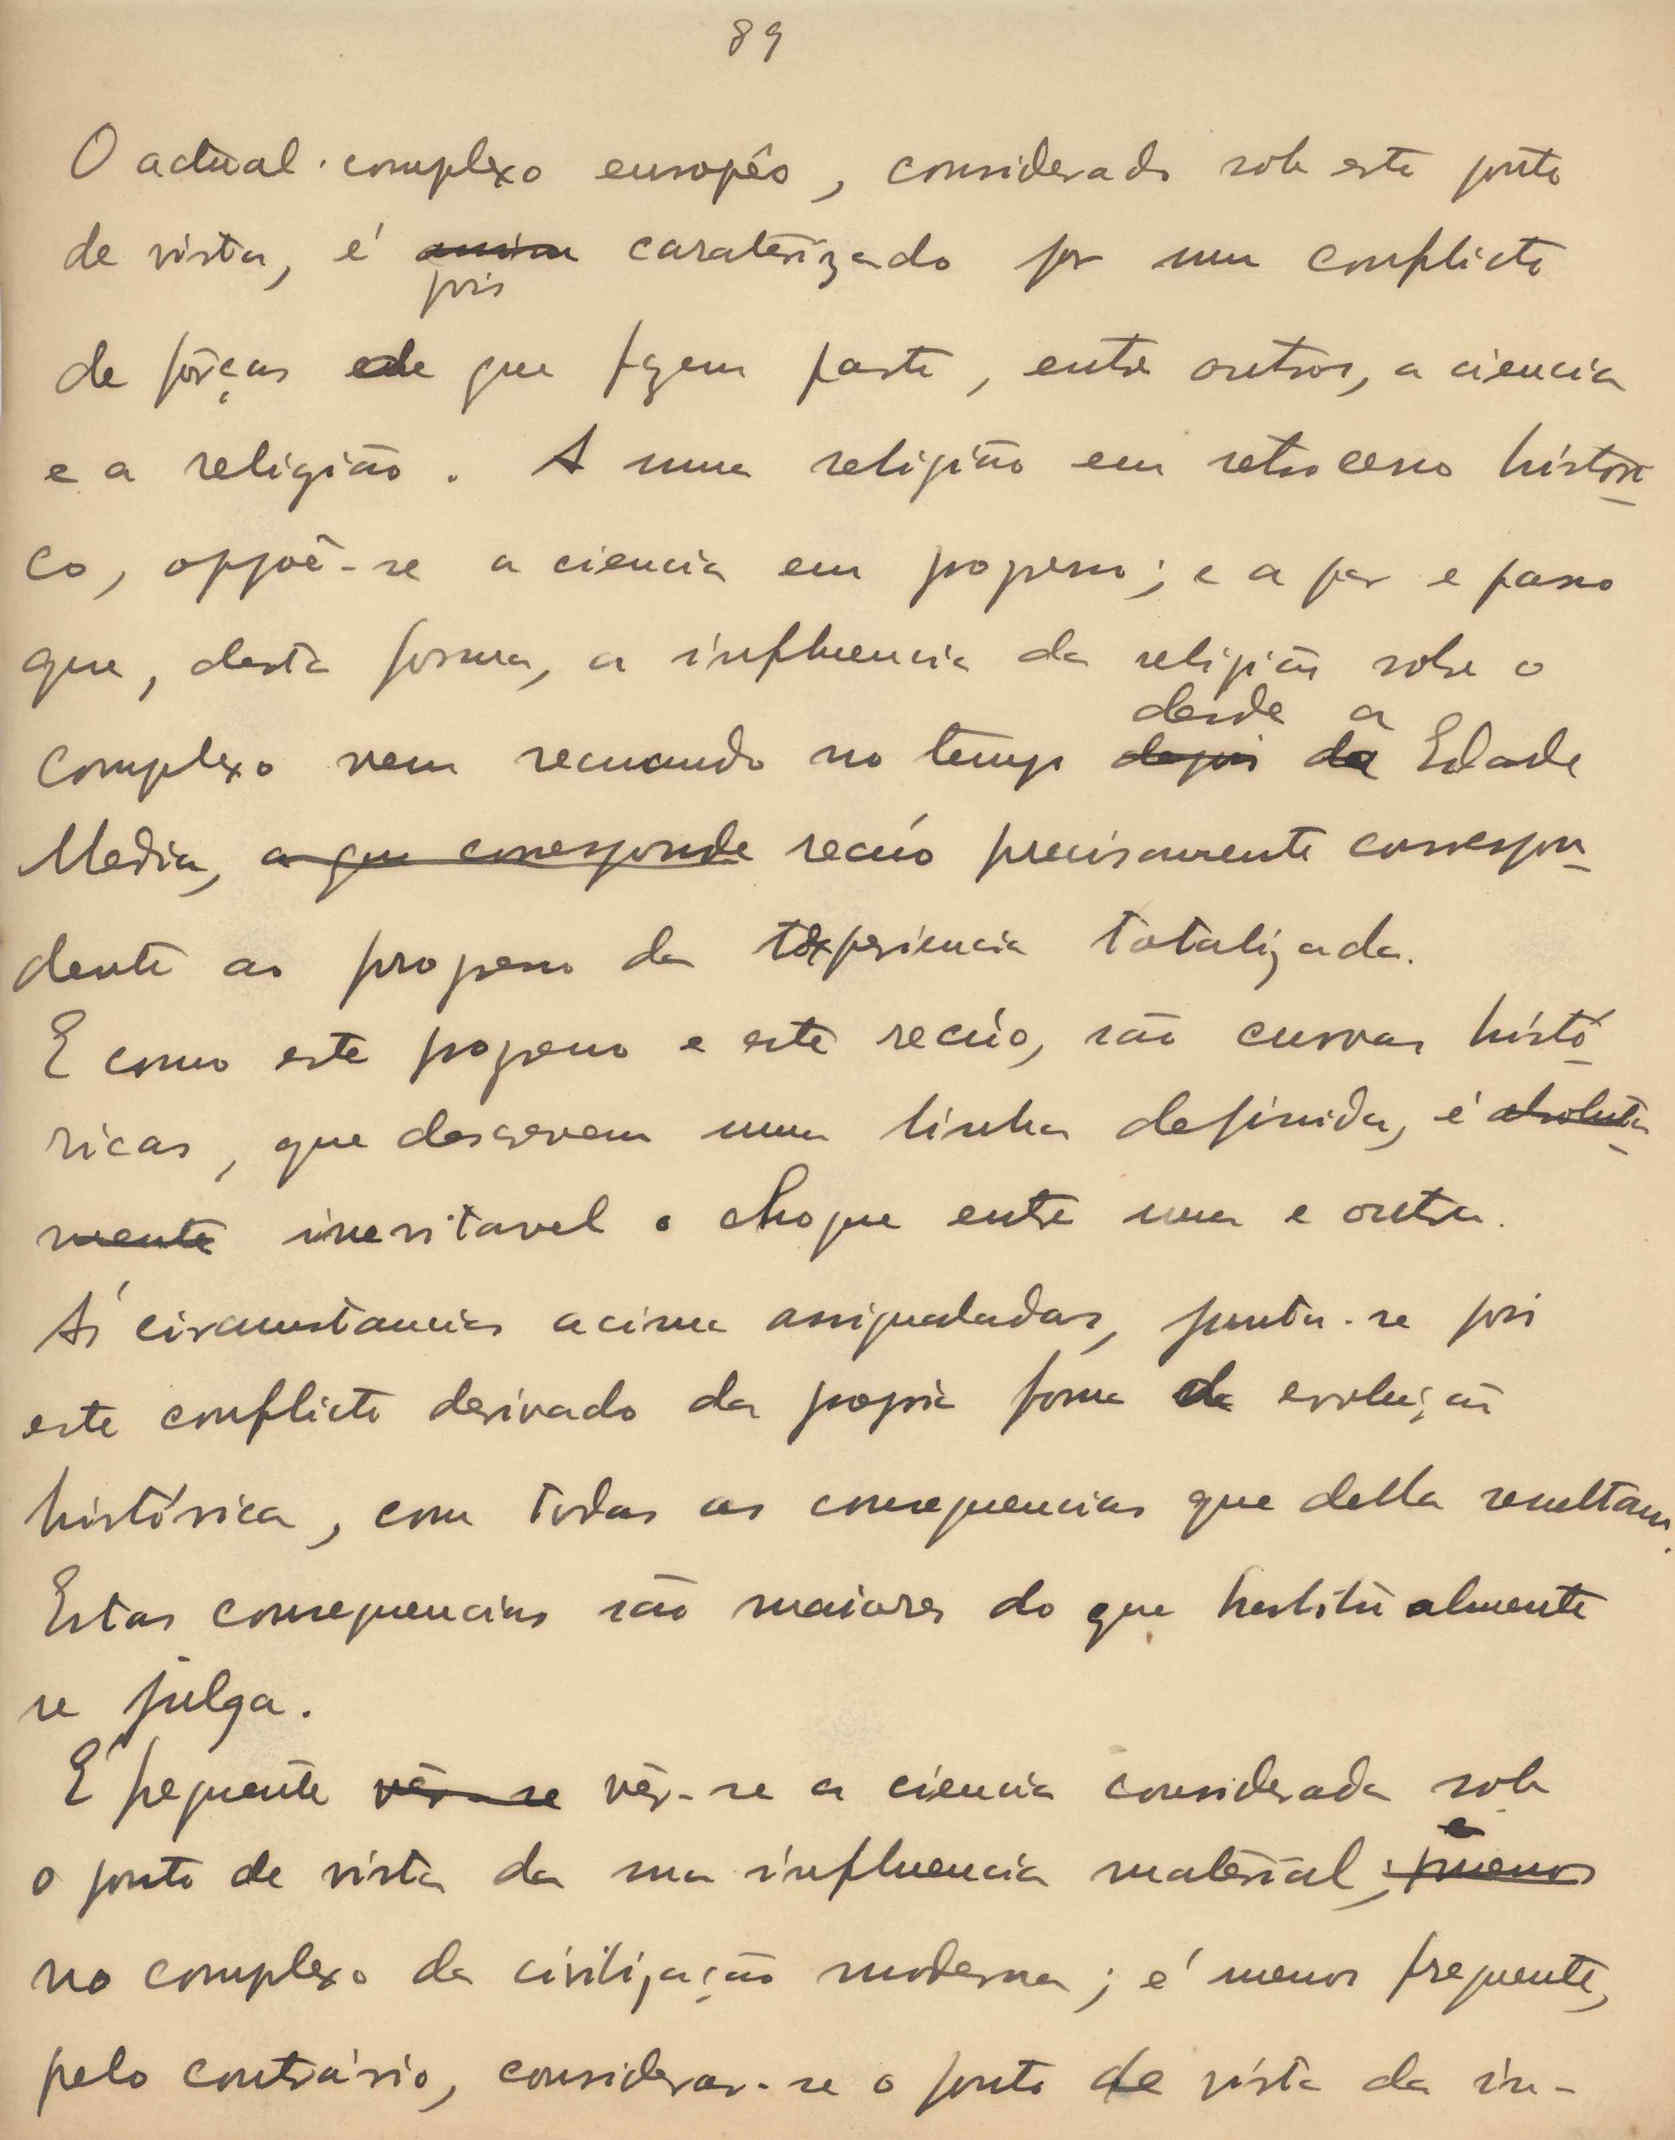 89
O actual complexo europêo, considerado sob este ponto
de vista, é assim caraterizado por um conflicto
pois
de fôrças de que fazem parte, entre outros, a ciencia
e a religião. A uma religião em retrocesso históri-
co, oppõe-se a ciencia em progresso; e a par e passo
que, desta forma, a influencia da religião sobre o
desde a
complexo vem recuando no tempo depois da Edade
Media, a que corresponde recúo precisamente correspon-
dente ao progresso da experiencia totalizada.
E como este progresso e este recúo, são curvas histó-
ricas, que descrevem uma linha definida, é absoluta-
mente inevitavel o choque entre uma e outra.
Ás circumstancias acima assignaladas, junta-se pois
este conflicto derivado da propria forma da evolução
histórica, com todas as consequencias que della resultam.
Estas consequencias são maiores do que habitualmente
se julga.
É frequente vêr-se vêr-se a ciencia considerada sob
o ponto de vista da sua influencia material, menos
no complexo da civilização moderna; é menos frequente,
pelo contrário, considerar-se o ponto de vista da in-